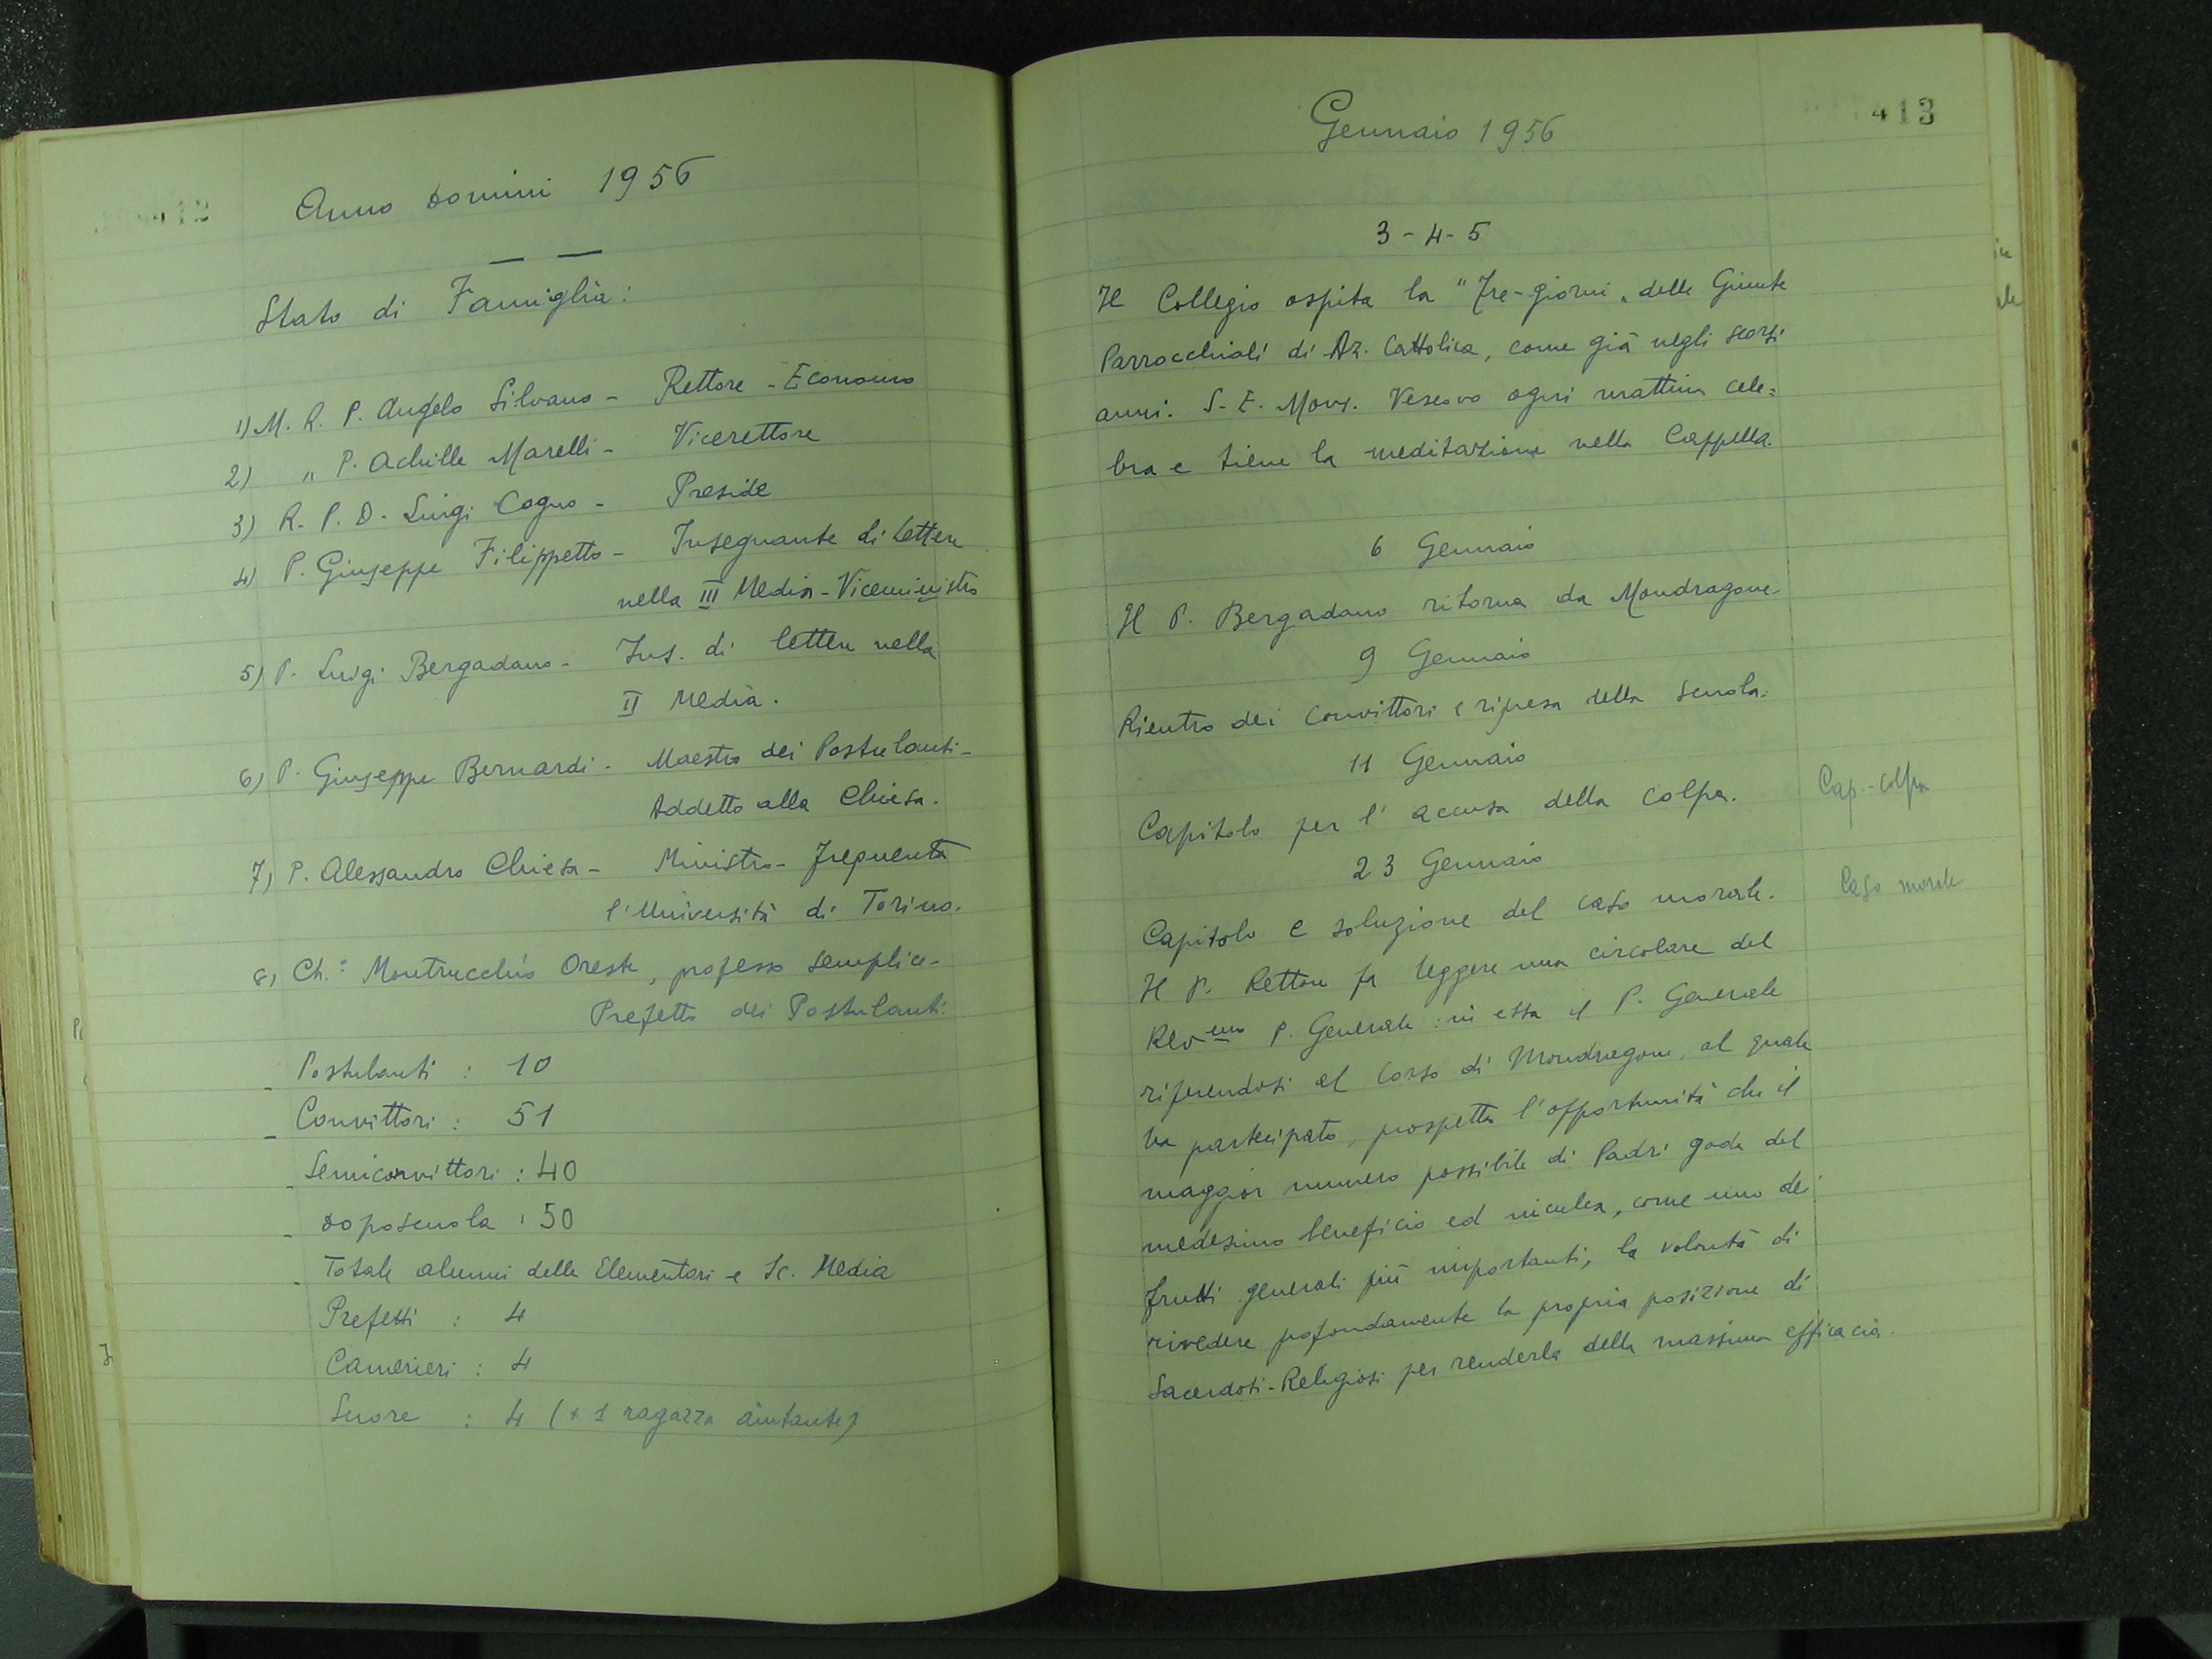 Anno Domini 1956
Stato di Famiglia:
1) M. R. P. Angelo Silvano - Rettore - Economo
2) " P. Achille Marelli - Vicerettore
3) R. P. D. Luigi Cogno - Preside
4) P. Giuseppe Filippetto - Insegnante di lettere
nella III Media - Viceministro
5) P. Luigi Bergadano - Ins. di lettere nella
II Media.
6) P. Giuseppe Bernardi - Maestro dei Postulanti -
Addetto alla Chiesa.
7) P. Alessandro Chiesa - Ministro - Frequenta
l'Università di Torino.
8) Ch.° Montrucchio Oreste, professo semplice -
Prefetto dei Postulanti.
- Postulanti : 10
- Convittori : 51
- Semiconvittori : 40
- Doposcuola : 50
- Totale alunni delle Elementari e Sc. Media
Prefetti : 4
Camerieri : 4
Suore : 4 (+ 1 ragazza aiutante)
413
Gennaio 1956
3 - 4 - 5
Il Collegio ospita la "Tre-giorni" delle Giunte
Parrocchiali di Az. Cattolica, come già negli scorsi
anni. S. E. Mons. Vescovo ogni mattina cele=
bra e tiene la meditazione nella Cappella.
6 Gennaio
Il P. Bergadano ritorna da Mondragone.
9 Gennaio
Rientro dei convittori e ripresa della scuola.
11 Gennaio
Capitolo per l'accusa della colpa.
Cap. - colpa
23 Gennaio
Capitolo e soluzione del caso morale.
Caso morale
Il P. Rettore fa leggere una circolare del
Rev.emo P. Generale : in essa il P. Generale
riferendosi al Corso di Mondragone, al quale
ha partecipato, prospetta l'opportunità che il
maggior numero possibile di Padri goda del
medesimo beneficio ed inculca, come uno dei
frutti generali più importanti, la volontà di
rivedere profondamente la propria posizione di
Sacerdoti-Religiosi per renderla della massima efficacia.